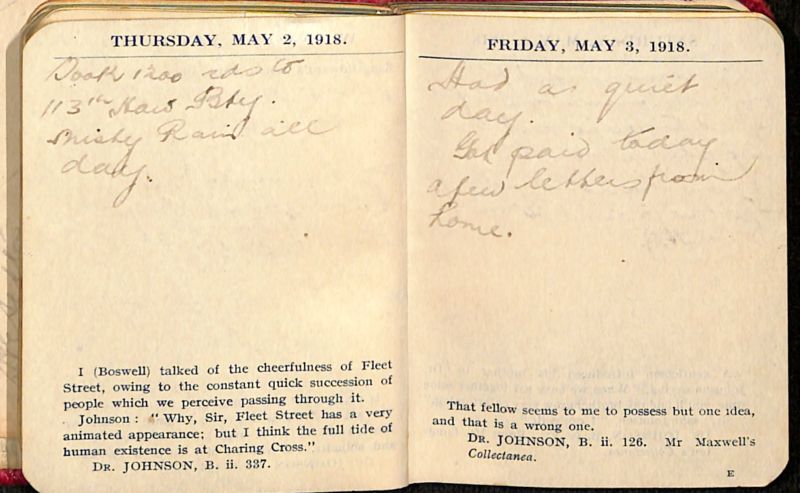 THURSDAY, MAY 2, 1918.
Took 1200 rds to
113th How Bty.
Misty Rain all
day.
I (Boswell) talked of the cheerfulness of Fleet
Street, owing to the constant quick succession of
people which we perceive passing through it.
Johnson: "Why, Sir, Fleet Street has a very
animated appearance; but I think the full tide of
human existence is at Charing Cross."
DR. JOHNSON, B. ii. 337.
FRIDAY, MAY 3, 1918.
Had a quiet
day.
Got paid today
a few letters from
home.
That fellow seems to me to possess but one idea,
and that is a wrong one.
DR. JOHNSON, B. ii. 126. Mr Maxwell's
Collectanea.
E